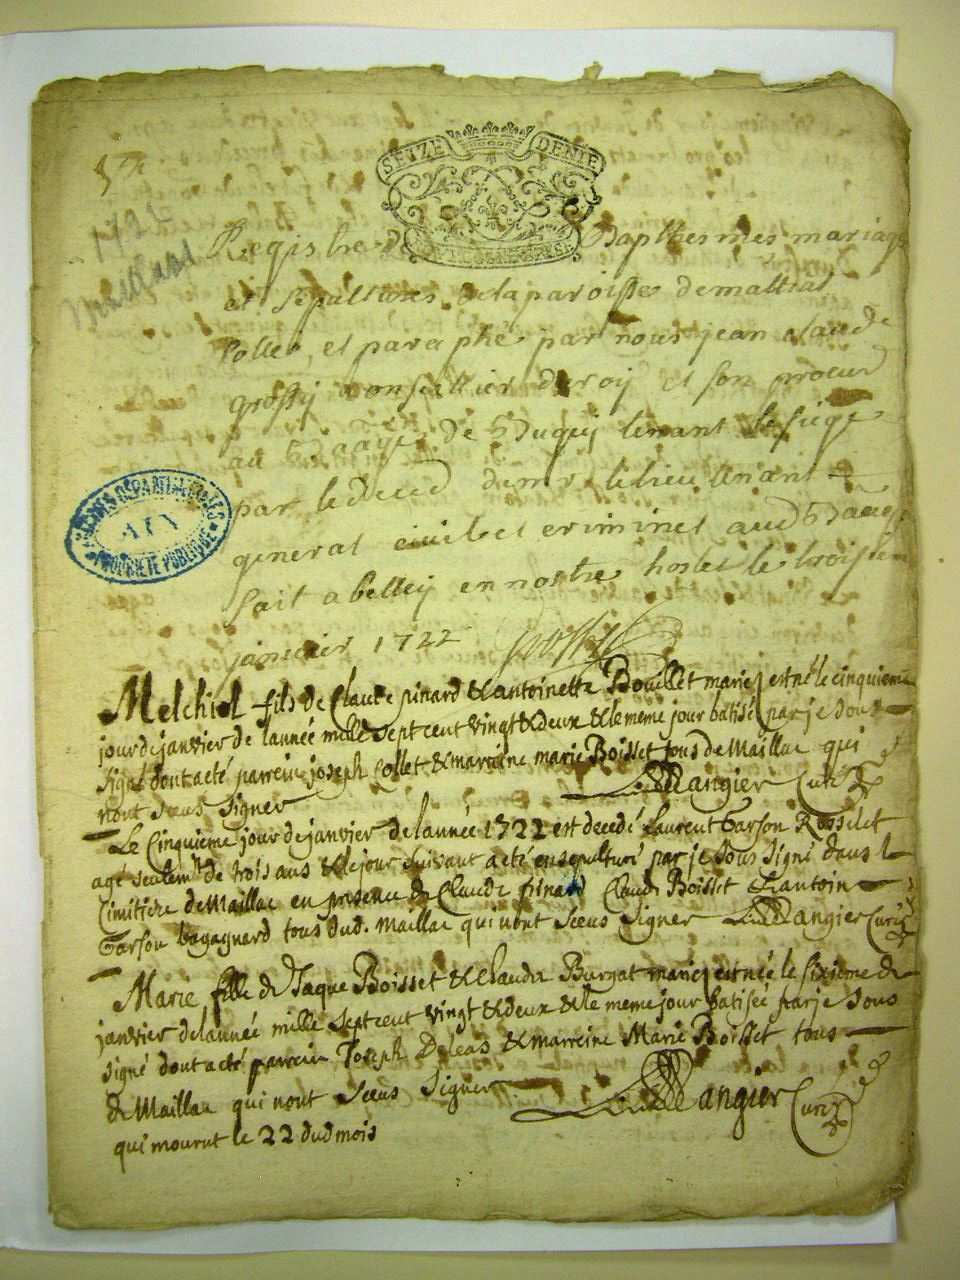 SEIZE DENIE
Registre de Bapthesmes mariage
et sepultures de la paroisse de mallias
Colle, et paraphe par nous jean claude
grossy Conseillier du roy et son procur
au Baage de Bugey tenant le siege
par le deced de mr le lieutenant
general civil et criminel aud Baage
fait a belley en nostre hostel le troisiem
janvier 1722
ARCHIVES DÉPARTALES
AIN
PROPRIÉTÉ PUBLIQUE
Melchiol fils de Claude pinard & antoinette Bouillet mariez est né le cinquieme
jour de janvier de lannée mille sept cent vingt & deux & le meme jour batisé par je sous
signé dont a eté parrein joseph Collet & marreine marie Boisset tous de Maillac qui
nont sceus signer Mangier Curé
Le Cinquieme jour de janvier de lannée 1722 est decedé Laurent Garson Rosselet
agé seulemt de trois ans & le jour suivant a eté ensepulturé par je sous signé dans le
Cimitiere de Maillac en presence de Claude pinard Claude Boisset & antoine
Garson bagagnard tous dud. Maillac qui nont sceus signer Mangier Curé
Marie fille de Jaque Boisset & Claudine Burgat mariez est née le sixieme de
janvier de lannée mille sept cent vingt & deux & le meme jour batisée par je sous
signé dont a eté parrein Joseph Deleas & marreine Marie Boisset tous
de Maillac qui nont sceus signer Mangier Curé
qui mourut le 22 dud mois